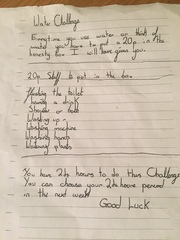 Water Challenge
Everytime you use water or think of
water you have to put a 20p in the
honesty box I will have given you.
20p Stuff to put in the box
Flushing the toilet
having a drink
Shower or bath
Washing up
Washing machine
Washing hands
Watering plants
You have 24 hours to do this Challenge
You can choose your 24 hour period
in the next week!
Good Luck